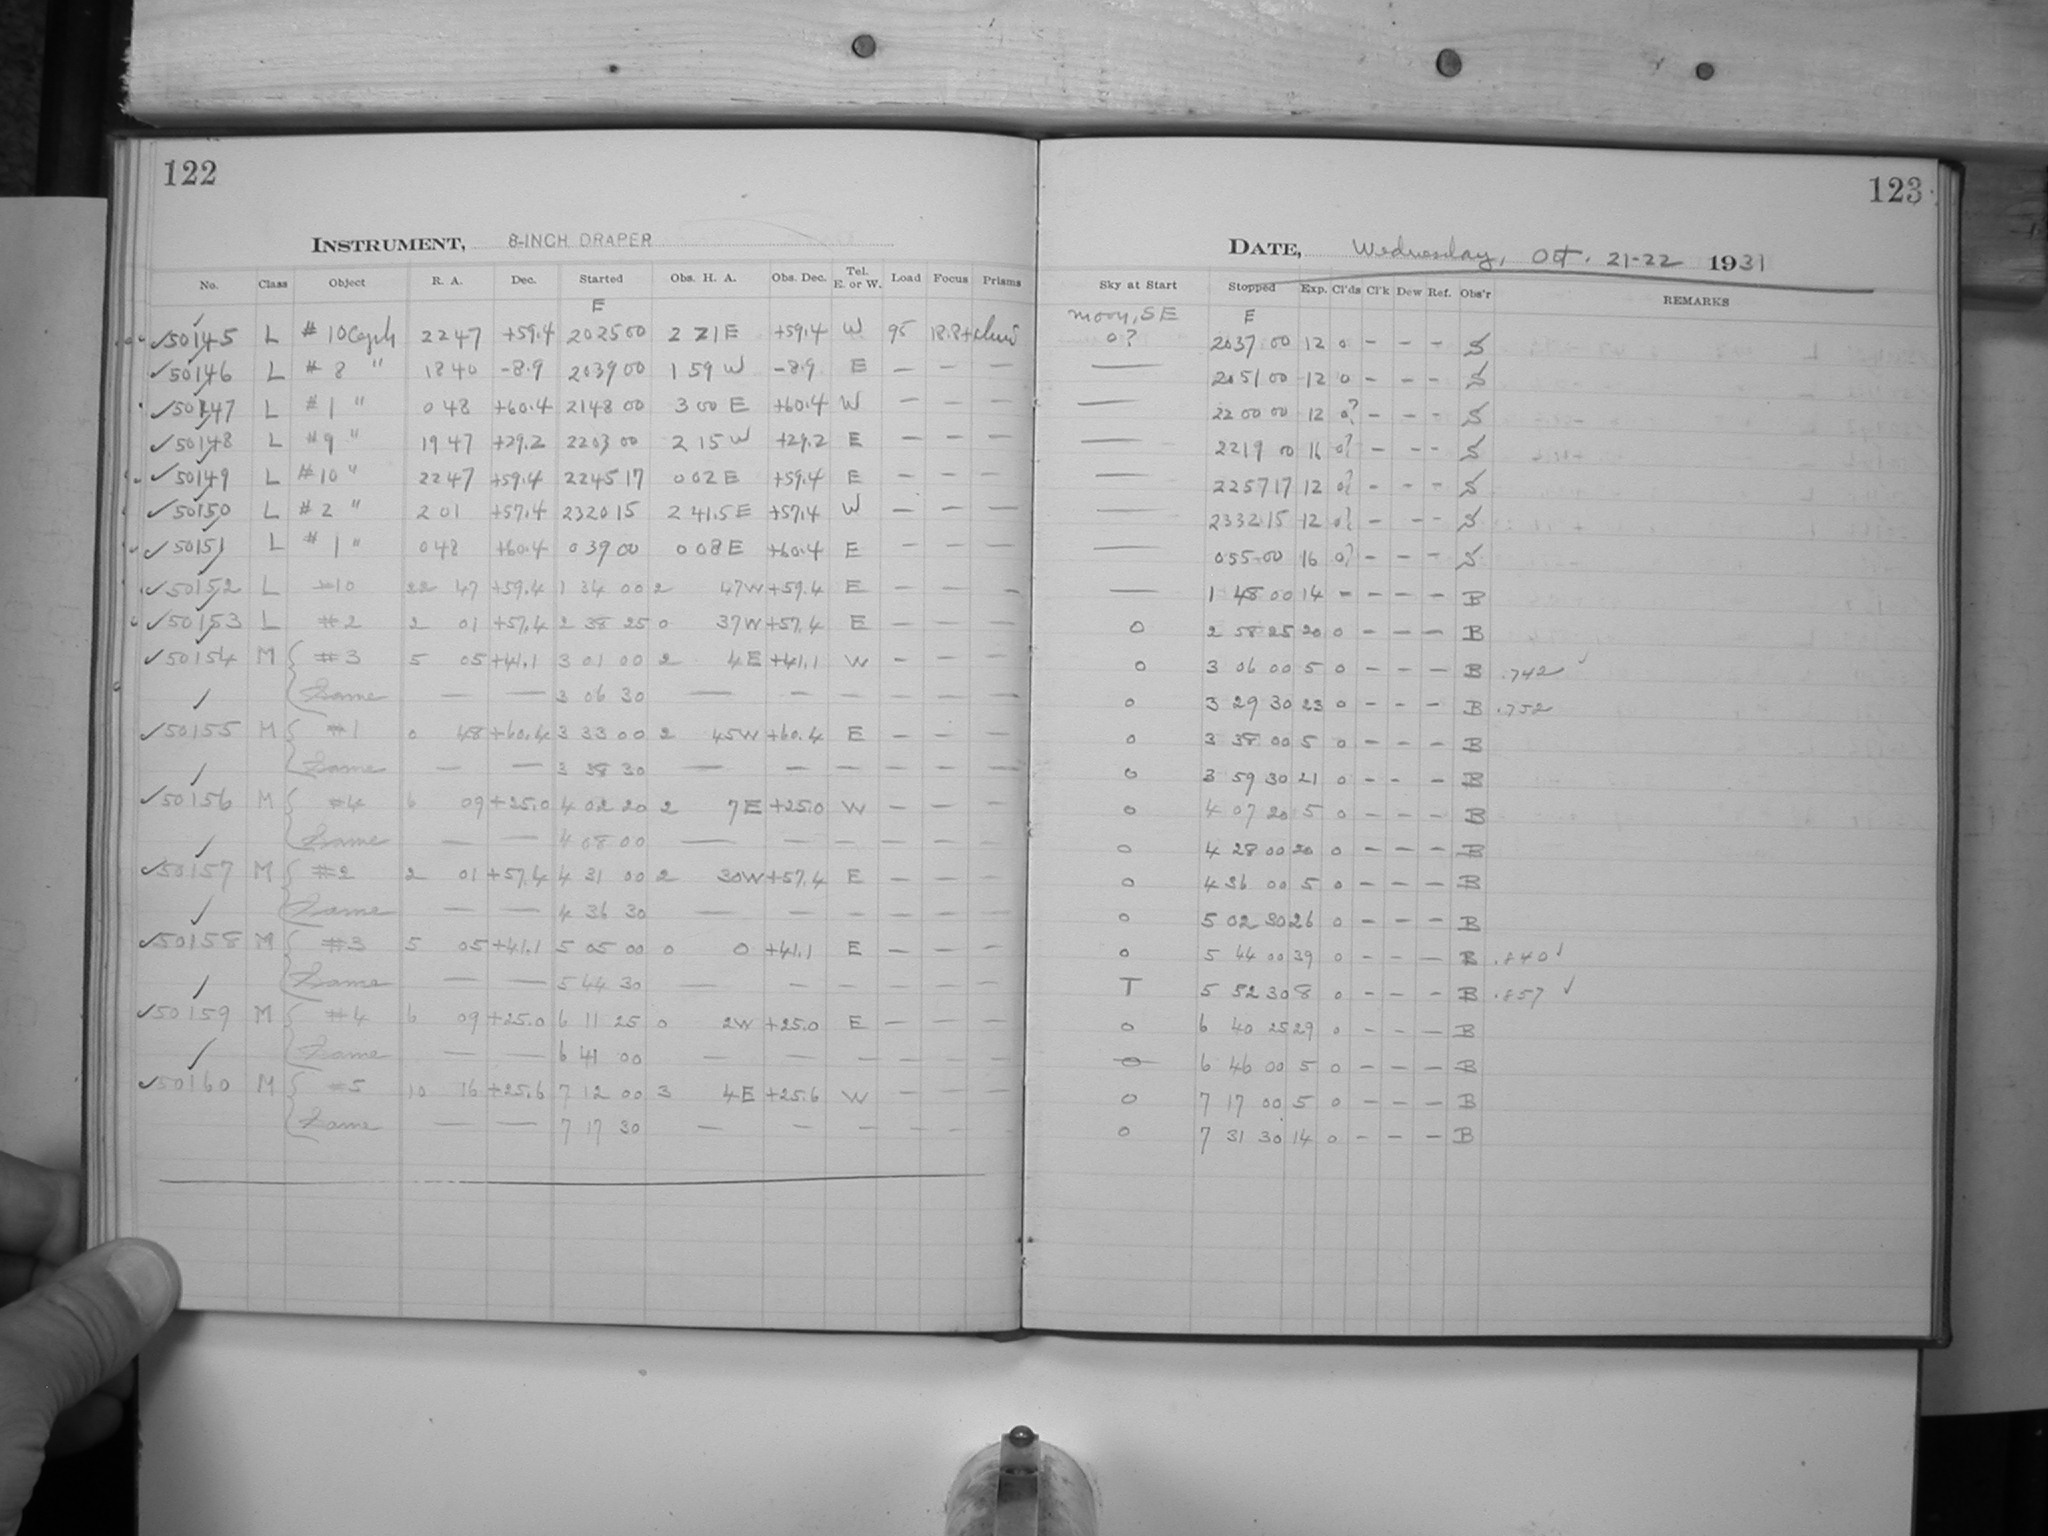 122
INSTRUMENT, 8-INCH DRAPER
No. Class Object R. A. Dec. Started Obs. H. A. Obs. Dec. Tel. E. or W. Load Focus Prisms
E
✓50145 L # 10 Ceph 22 47 +59.4 20 25 00 2 21 E +59.4 W 95
✓50146 L # 8 " 18 40 -8.9 20 39 00 1 59 W -8.9 E — — —
✓50147 L # 1 " 0 48 +60.4 21 48 00 3 00 E +60.4 W — — —
✓50148 L # 9 " 19 47 +29.2 22 03 00 2 15 W +29.2 E — — —
✓50149 L # 10 " 22 47 +59.4 22 45 17 0 02 E +59.4 E — — —
✓50150 L # 2 " 2 01 +57.4 23 20 15 2 41.5 E +57.4 W — — —
✓50151 L # 1 " 0 48 +60.4 0 39 00 0 08 E +60.4 E — — —
✓50152 L #10 22 47 +59.4 1 34 00 2 47 W +59.4 E — — —
✓50153 L #2 2 01 +57.4 2 38 25 0 37 W +57.4 E — — —
✓50154 M { #3 5 05 +41.1 3 01 00 2 4 E +41.1 W — — —
Same — — 3 06 30 — — — — — —
✓50155 M { #1 0 48 +60.4 3 33 00 2 45 W +60.4 E — — —
Same — — 3 38 30 — — — — — —
✓50156 M { #4 6 09 +25.0 4 02 20 2 7 E +25.0 W — — —
Same — — 4 08 00 — — — — — —
✓50157 M { #2 2 01 +57.4 4 31 00 2 30 W +57.4 E — — —
Same — — 4 36 30 — — — — — —
✓50158 M { #3 5 05 +41.1 5 05 00 0 0 +41.1 E — — —
Same — — 5 44 30 — — — — — —
✓50159 M { #4 6 09 +25.0 6 11 25 0 2 W +25.0 E — — —
Same — — 6 41 00 — — — — — —
✓50160 M { #5 10 16 +25.6 7 12 00 3 4 E +25.6 W — — —
Same — — 7 17 30 — — — — — —
123
DATE, Wednesday, Oct. 21-22 1931
Sky at Start Stopped Exp. Cl'ds Cl'k Dew Ref. Obs'r REMARKS
moon, SE E
0? 20 37 00 12 0 - - - S
— 20 51 00 12 0 - - - S
— 22 00 00 12 0? - - - S
— 22 19 00 16 0? - - - S
— 22 57 17 12 0? - - - S
— 23 32 15 12 0? - - - S
— 0 55 00 16 0? - - - S
— 1 48 00 14 - - - - B
0 2 58 25 20 0 - - - B
0 3 06 00 5 0 - - - B .742 ✓
0 3 29 30 23 0 - - - B .752
0 3 38 00 5 0 - - - B
0 3 59 30 21 0 - - - B
0 4 07 20 5 0 - - - B
0 4 28 00 20 0 - - - B
0 4 36 00 5 0 - - - B
0 5 02 30 26 0 - - - B
0 5 44 00 39 0 - - - B .840 ✓
T 5 52 30 8 0 - - - B .857 ✓
0 6 40 25 29 0 - - - B
0 6 46 00 5 0 - - - B
0 7 17 00 5 0 - - - B
0 7 31 30 14 0 - - - B